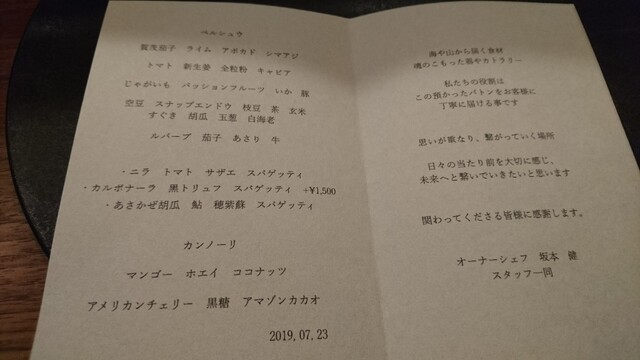 ペルシュウ
賀茂茄子 ライム アボカド シマアジ
トマト 新生姜 全粒粉 キャビア
じゃがいも パッションフルーツ いか 豚
空豆 スナップエンドウ 枝豆 茶 玄米
すぐき 胡瓜 玉葱 白海老
ルバーブ 茄子 あさり 牛
・ニラ トマト サザエ スパゲッティ
・カルボナーラ 黒トリュフ スパゲッティ +¥1,500
・あさかぜ胡瓜 鮎 穂紫蘇 スパゲッティ
カンノーリ
マンゴー ホエイ ココナッツ
アメリカンチェリー 黒糖 アマゾンカカオ
2019,07,23
海や山から届く食材
魂のこもった器やカトラリー
私たちの役割は
この預かったバトンをお客様に
丁寧に届ける事です
思いが重なり、繋がっていく場所
日々の当たり前を大切に感じ、
未来へと繋いでいきたいと思います
関わってくださる皆様に感謝します。
オーナーシェフ 坂本 健
スタッフ一同